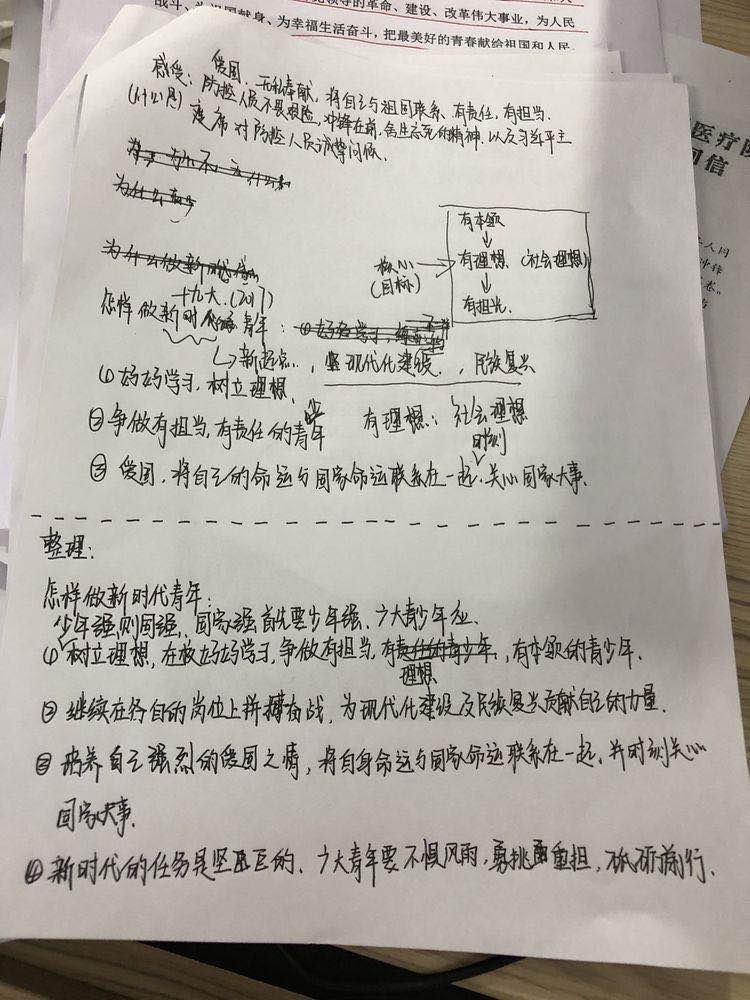 领导的革命、建设、改革伟大事业，为人民
战斗、为祖国献身、为幸福生活奋斗，把最美好的青春献给祖国和人民
医疗队
回信
感受：爱国，无私奉献，将自己与祖国联系，有责任，有担当.
防控人员不畏艰险，冲锋在前，舍生忘死的精神. 以及习近平主
席对防控人员诚挚问候.
为什么
为什么
为什么做新时代
有本领
↓
核心 → 有理想 (社会理想)
(目标)
↓
有担当.
十九大.(2017)
怎样做新时代青年：① 好好学习，
↳新起点..，坚 现代化建设. ，民族复兴
① 好好学习，树立理想.
② 争做有担当，有责任的青少年
有理想：社会理想
③ 爱国，将自己的命运与国家命运联系在一起，时刻关心国家大事.
整理：
怎样做新时代青年：
少年强则国强，国家强首先要少年强、广大青少年应.
① 树立理想，在校好好学习，争做有担当，有责任的青少年，理想，有本领的青少年.
② 继续在各自的岗位上拼搏奋战，为现代化建设及民族复兴贡献自己的力量.
③ 培养自己强烈的爱国之情，将自身命运与国家命运联系在一起、并时刻关心
国家大事.
④ 新时代的任务是坚巨的、广大青年要不惧风雨，勇挑重担，砥砺前行.